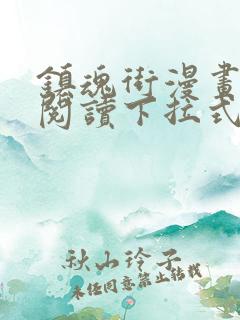 鎮魂街漫畫
閱讀下拉式
秋山玲子
未經同意禁止轉載